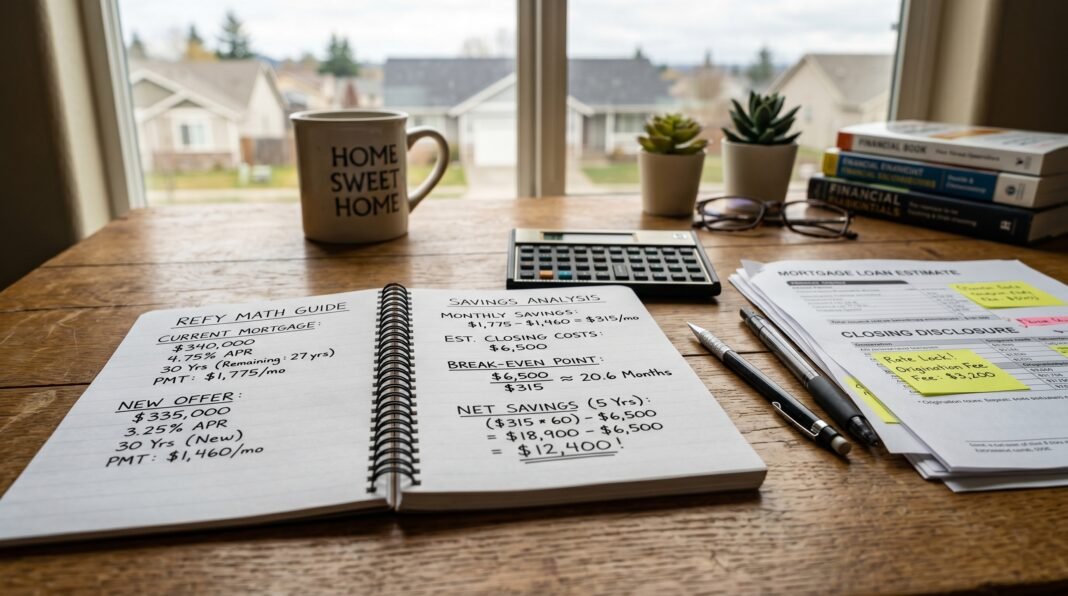 HOME
SWEET
HOME
REFY MATH GUIDE
CURRENT MORTGAGE:
$340,000
4.75% APR
30 Yrs (Remaining: 27 yrs)
PMT: $1,775/mo
NEW OFFER:
$335,000
3.25% APR
30 Yrs (New)
PMT: $1,460/mo
SAVINGS ANALYSIS
MONTHLY SAVINGS:
$1,775 - $1,460 = $315/mo
EST. CLOSING COSTS:
$6,500
BREAK-EVEN POINT:
$6,500
$315
≈ 20.6 Months
NET SAVINGS (5 Yrs):
($315 * 60) - $6,500
= $18,900 - $6,500
= $12,400!
FINANCIAL BOOK
FINANCIAL
MORTGAGE LOAN ESTIMATE
CLOSING DISCLOSURE
Rate Lock!
Origination Fee
Fee: $3,200